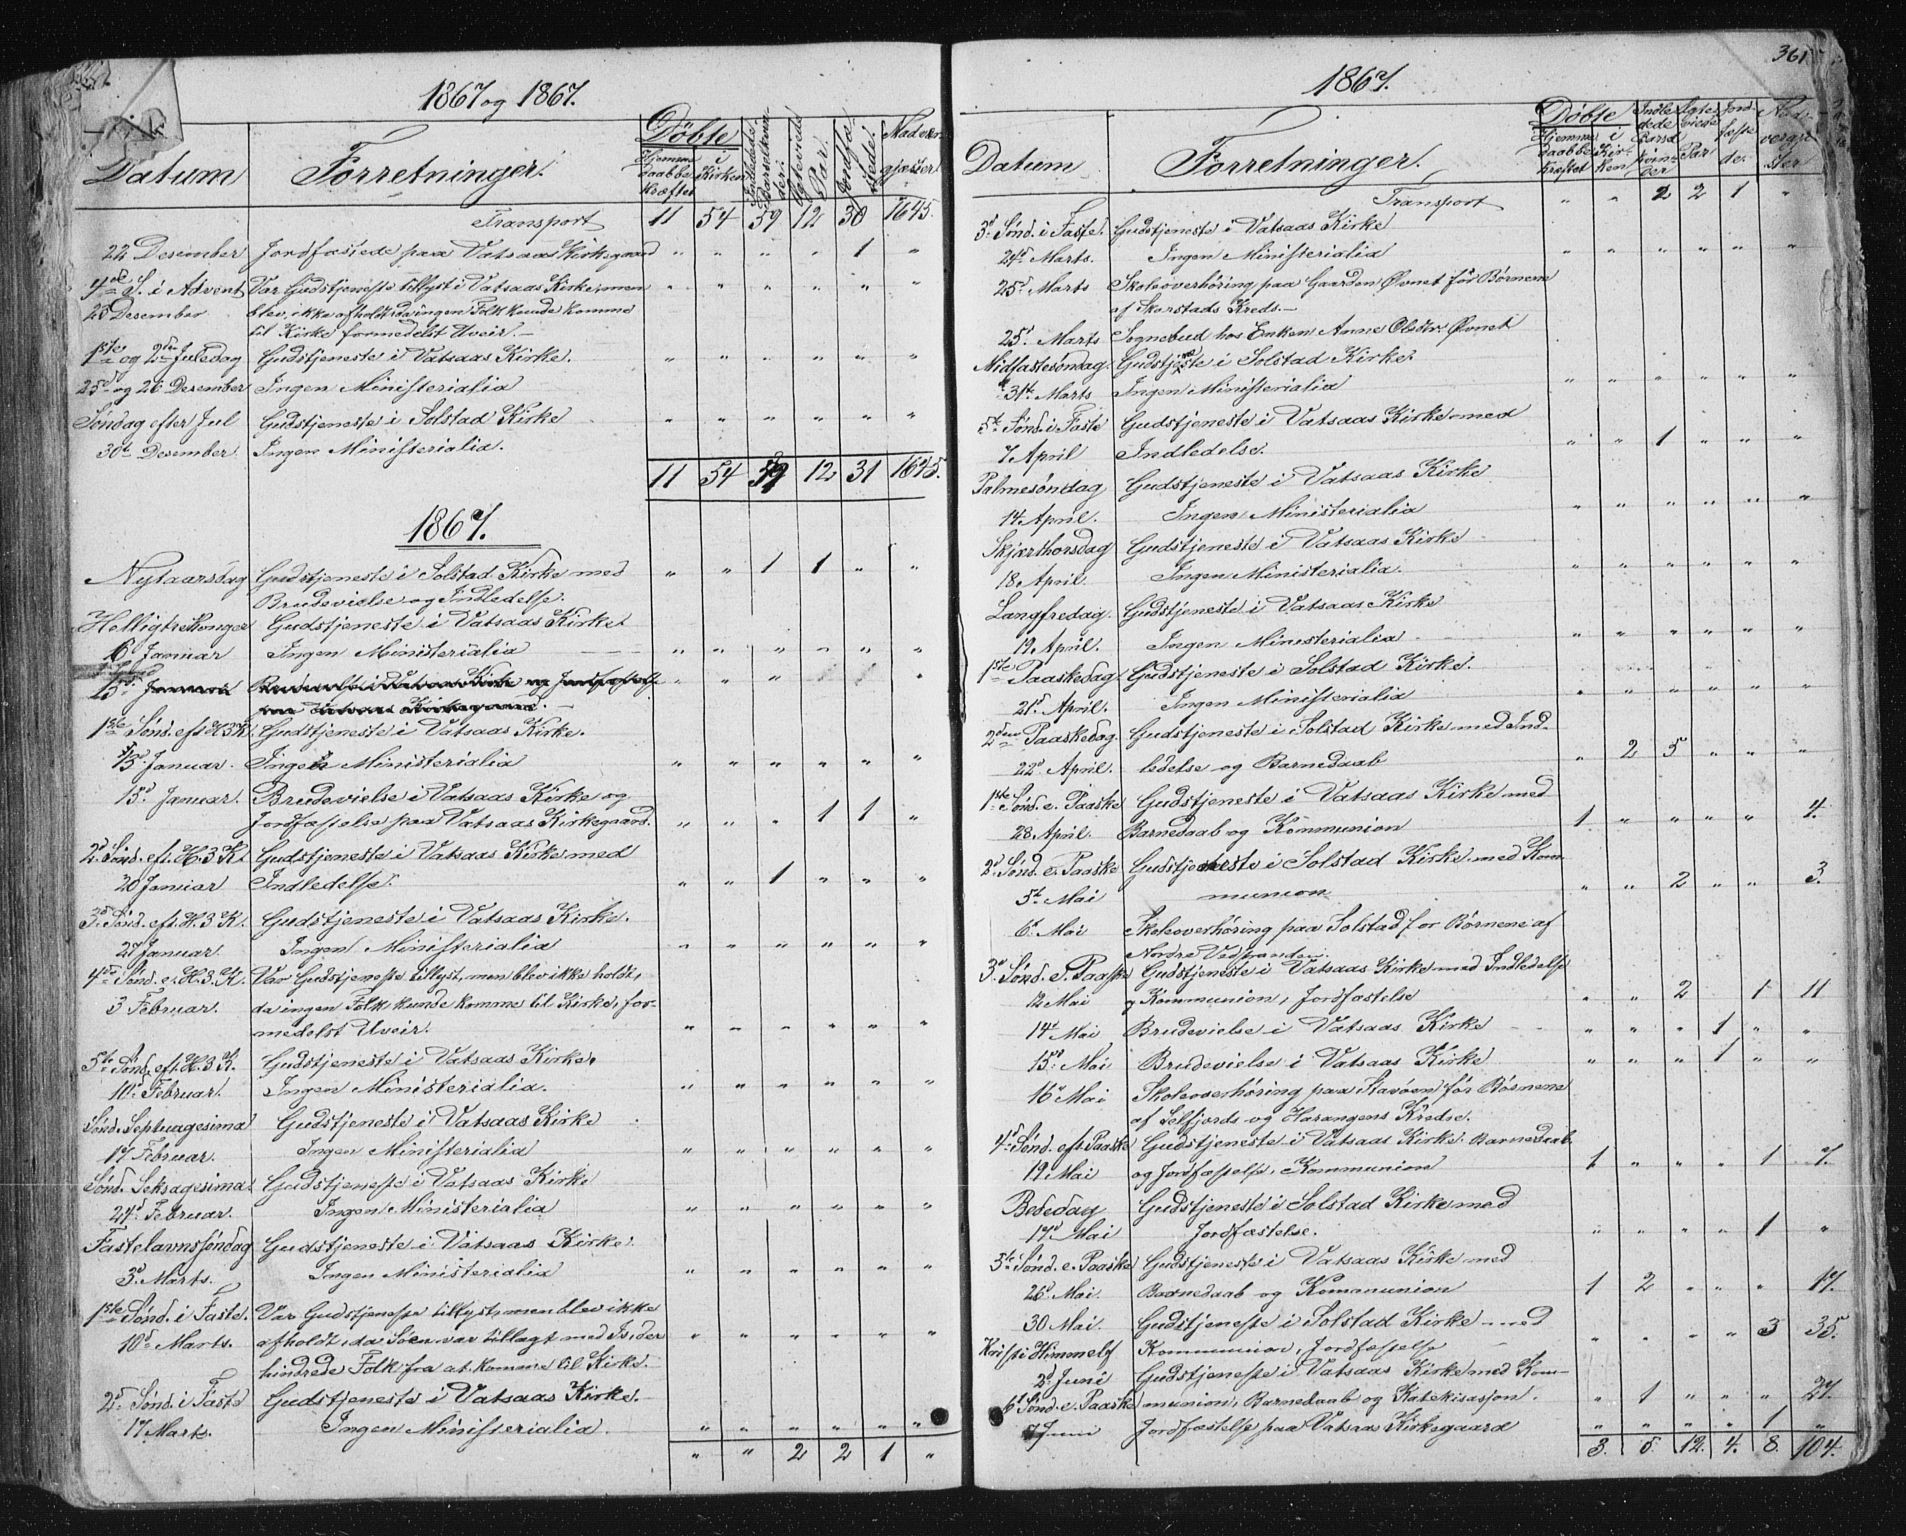 1867 og 1867.
Datum
Forretninger.
Døbte
Hjemme
daabbe
kræftet
i
Kirken
Indledede
Barselkvin
der.
Ægteviede
Par.
Jordfæ
stede.
Nadver
gjæster
Transport 11 54 59 12 30 1645.
22 Desember Jordfæstede paa Vatsaas Kirkegaard " " " " 1 "
4de S. i Advent Var Gudstjeneste tillyst i Vatsaas Kirke, men " " " " " "
23 Desember blev ikke afholdt, da ingen Folk kunde komme
til Kirke formedelst Uveir.
1ste og 2den Juledag Gudstjeneste i Vatsaas Kirke. " " " " " "
25d og 26 Desember Ingen Ministerialia
Søndag efter Jul Gudstjeneste i Solstad Kirke " " " " " "
30te Desember. Ingen Ministerialia.
11 54 59 12 31 1645.
1867.
Nytaarsdag Gudstjeneste i Solstad Kirke med " " 1 1 " "
Brudevielse og Indledelse.
Helligtrekonger Gudstjeneste i Vatsaas Kirke
6 Januar Ingen Ministerialia " " " " " "
15 Januar
1ste Sønd. eft H3K. Gudstjeneste i Vatsaas Kirke.
13 Januar. Ingen Ministerialia " " " " " "
15d Januar. Brudevielse i Vatsaas Kirke og
Jordfæstelse paa Vatsaas Kirkegaard. " " " 1 1 "
2d Sønd. eft. H. 3 K. Gudstjeneste i Vatsaas Kirke med
20 Januar Indledelse. " " 1 " " "
3d Sønd. eft. H. 3 K. Gudstjeneste i Vatsaas Kirke.
27 Januar. Ingen Ministerialia " " " " " "
4de Sønd. e. H. 3 K. Var Gudstjeneste tillyst, men blev ikke holdt,
3 Februar. da ingen Folk kunde komme til Kirke, for-
medelst Uveir. " " " " " "
5te Sønd. eft. H. 3 K. Gudstjeneste i Vatsaas Kirke.
10d Februar. Ingen Ministerialia. " " " " " "
Sønd. Septuagesima Gudstjeneste i Vatsaas Kirke
17 Februar. Ingen Ministerialia " " " " " "
Sønd. Seksagesima. Gudstjeneste i Vatsaas Kirke
24d Februar. Ingen Ministerialia " " " " " "
Fastelavnssøndag Gudstjeneste i Vatsaas Kirke.
3d Marts. Ingen Ministerialia " " " " " "
1ste Sønd. i Faste. Var Gudstjeneste tillyst, men blev ikke
10d Marts. afholdt, da Søen var tillagt med Is, der " " " " " "
hindrede Folk fra at komme til Kirke.
2d Sønd. i Faste Gudstjeneste i Vatsaas Kirke.
17 Marts. Ingen Ministerialia. " " " " " "
" " 2 2 1 "
361
1867.
Datum
Forretninger.
Døbte
Hjemme
daabbe
kræftet
i
Kir-
ken
Indle
dede
Barsel
kvin-
der
Ægte
viede
Par
Jord-
fæste
de.
Nad-
vergjæ
ster
Transport " " 2 2 1 "
3d Sønd. i Faste. Gudstjeneste i Vatsaas Kirke
24d Marts. Ingen Ministerialia " " " " " "
25d Marts Skoleoverhøring paa Gaarden Øvnet for Børnene
af Skarstads Kreds.
25d Marts Sognebud hos Enken Anne Olsdtr. Øvnet
Midfastesøndag Gudstjeneste i Solstad Kirke
31te Marts Ingen Ministerialia " " " " " "
5te Sønd. i Faste Gudstjeneste i Vatsaas Kirke med
7 April Indledelse. " " 1 " " "
Palmesøndag Gudstjeneste i Vatsaas Kirke
14. April. Ingen Ministerialia " " " " " "
Skjærthorsdag Gudstjeneste i Vatsaas Kirke
18. April. Ingen Ministerialia. " " " " " "
Langfredag. Gudstjeneste i Vatsaas Kirke
19. April. Ingen Ministerialia " " " " " "
1ste Paaskedag Gudstjeneste i Solstad Kirke.
21d April. Ingen Ministerialia " " " " " "
2den Paaskedag. Gudstjeneste i Solstad Kirke med Ind-
22d April. ledelse og Barnedaab " 2 5 " " "
1ste Sønd. e. Paaske Gudstjeneste i Vatsaas Kirke med
28 April. Barnedaab og Kommunion 1 " " " " 4.
2d Sønd. e. Paaske Gudstjeneste i Solstad Kirke med Kom-
5te Mai munion " " 2 " " 3.
6d Mai Skoleoverhøring paa Solstad for Børnene af
Nordre Vedstranden.
3d Sønd. e. Paaske Gudstjeneste i Vatsaas Kirke med Indledelse
12 Mai og Kommunion, Jordfæstelse " " 2 " 1 11
14d Mai Brudevielse i Vatsaas Kirke " " " 1 " "
15d Mai Brudevielse i Vatsaas Kirke " " " 1 " "
16d Mai Skoleoverhøring paa Stavøen for Børnene
af Selfjords og Harangens Kredse.
4d Sønd. eft. Paaske Gudstjeneste i Vatsaas Kirke. Barnedaab
19 Mai og Jordfæstelse, Kommunion 1 " " " 1 7.
Bededag Gudstjeneste i Solstad Kirke med
17d Mai Jordfæstelse. " " " " 1 "
5te Sønd. e. Paaske Gudstjeneste i Vatsaas Kirke med
26d Mai. Barnedaab og Kommunion 1 2 " " " 17.
30 Mai. Gudstjeneste i Solstad Kirke med " " " " 3 35.
Kristi Himmelf Kommunion, Jordfæstelse
2d Juni Gudstjeneste i Vatsaas Kirke med Kom-
6d Sønd. e. Paaske munion, Barnedaab og Katekisasjon. " 1 " " " 27.
7 Juni Jordfæstelse paa Vatsaas Kirkegaard " " " " 1 "
3. 5. 12. 4. 8. 104.